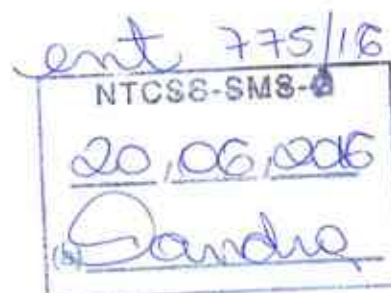 ent 775/16
NTCSS-SMS-
20,06,2016
(a) Sandra